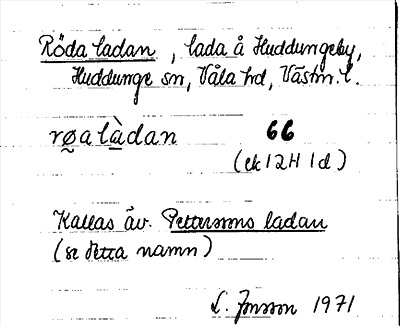 Röda ladan, lada å Huddungeby,
Huddunge sn, Våla hd, Västm. l.
rø̰a là̱dan 66
(ek 12H 1d)
Kallas äv. Petterssons ladan
(se detta namn)
L. Jonsson 1971